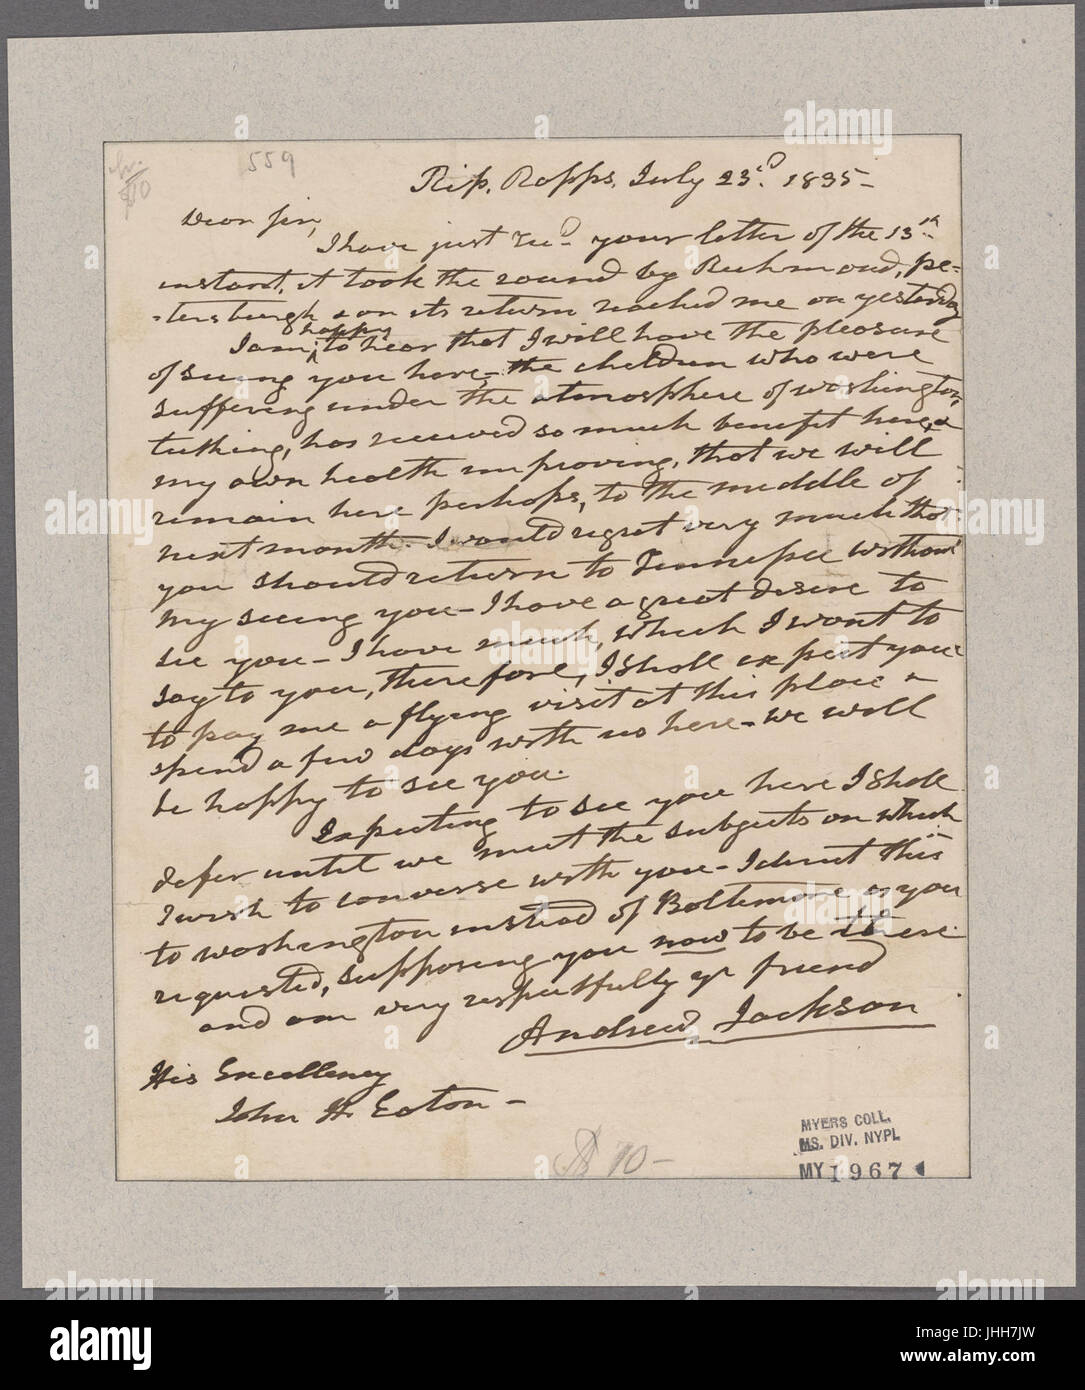 559
$10
Rip. Rapps, July 23d. 1835-
Dear Sir,
I have just recd. your letter of the 13th
instant, it took the round by Richmond, Pe-
-tersburgh & on its return reached me on yesterday
I am happy to hear that I will have the pleasure
of seeing you here,- the children who were
suffering under the atmosphere of Washington,
teething, has received so much benefit here, &
my own health improving, that we will
remain here perhaps, to the middle of
next month. I would regret very much that
you should return to Tennessee without
my seeing you - I have a great desire to
see you - I have much, which I want to
say to you, therefore, I shall expect you
to pay me a flying visit at this place &
spend a few days with us here - we will
be happy to see you.
Expecting to see you here I shall
defer until we meet the subjects on which
I wish to converse with you - I direct this
to Washington instead of Baltimore as you
requested, supposing you now to be there
and am very respectfully yr friend
Andrew Jackson
His Excellency
John H. Eaton -
$10-
MYERS COLL.
MS. DIV. NYPL
MY 1967
a alamy
alamy
JHH7JW
www.alamy.com